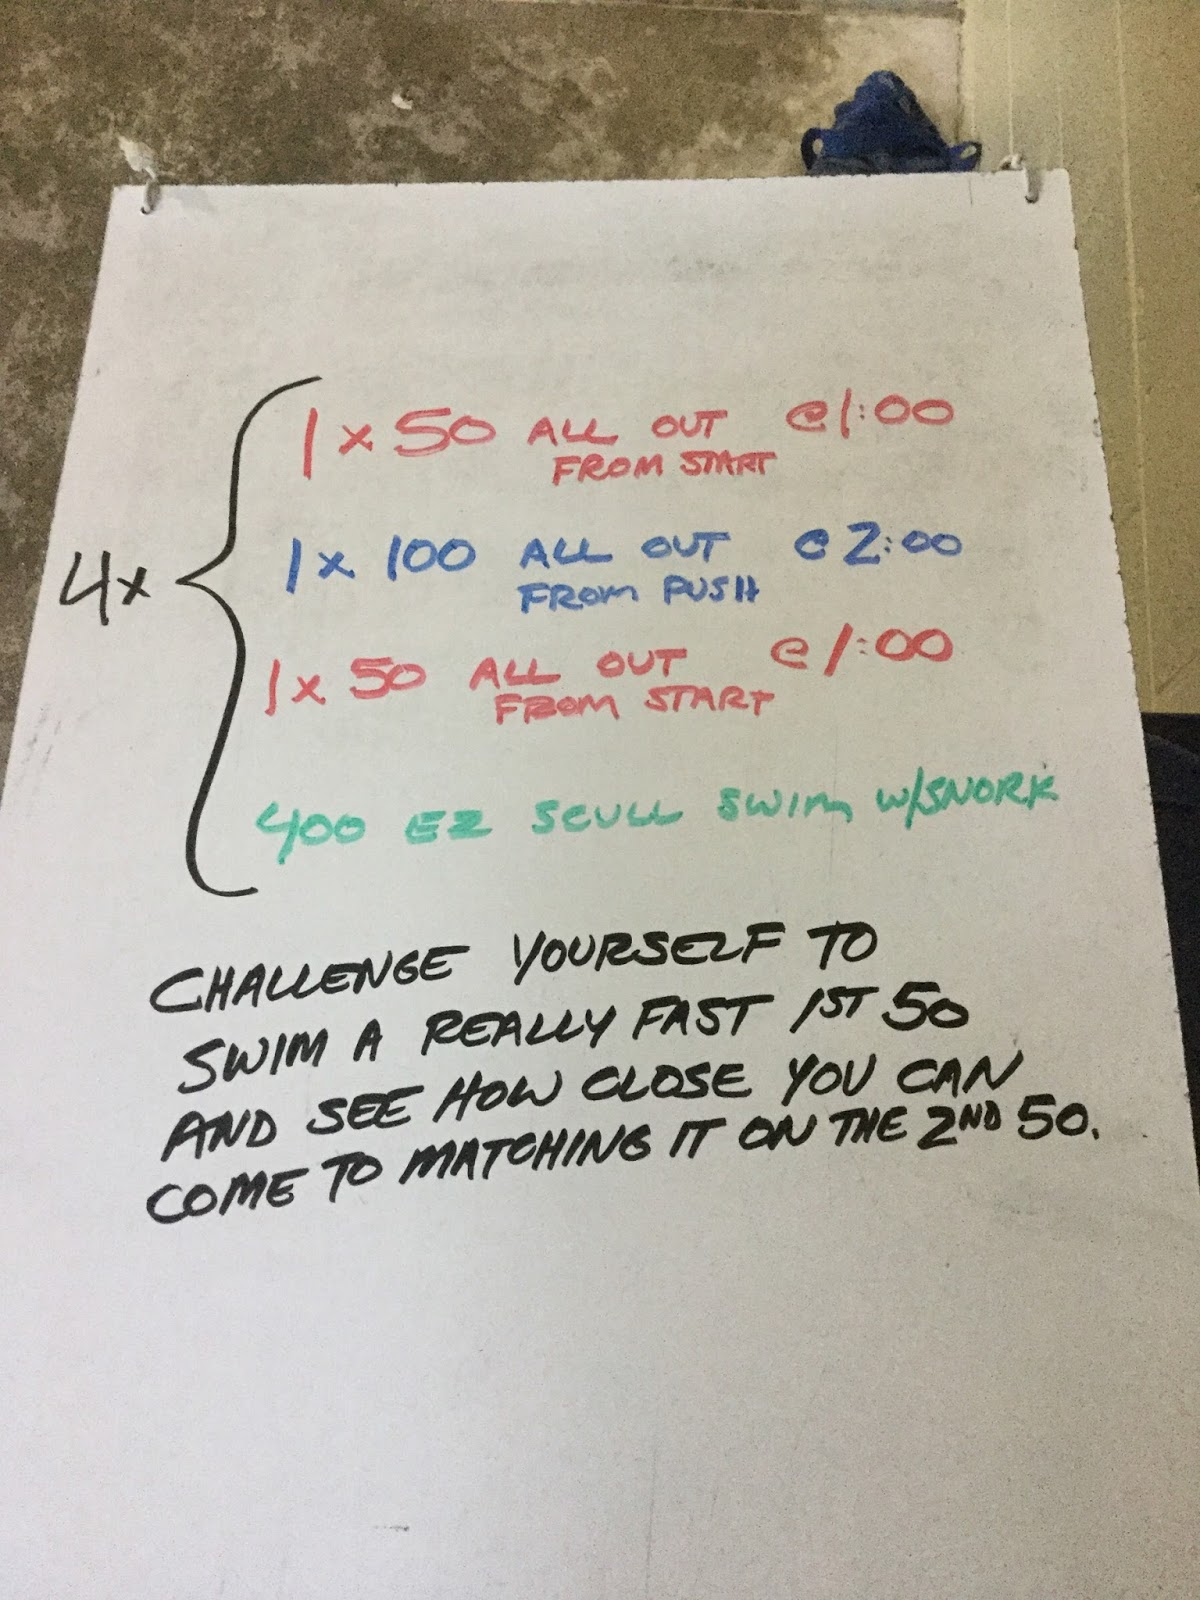 1 x 50 ALL OUT @ 1:00
FROM START
1 x 100 ALL OUT @ 2:00
FROM PUSH
4x
1 x 50 ALL OUT @ 1:00
FROM START
400 EZ SCULL SWIM W/SNORK
CHALLENGE YOURSELF TO
SWIM A REALLY FAST 1ST 50
AND SEE HOW CLOSE YOU CAN
COME TO MATCHING IT ON THE 2ND 50.